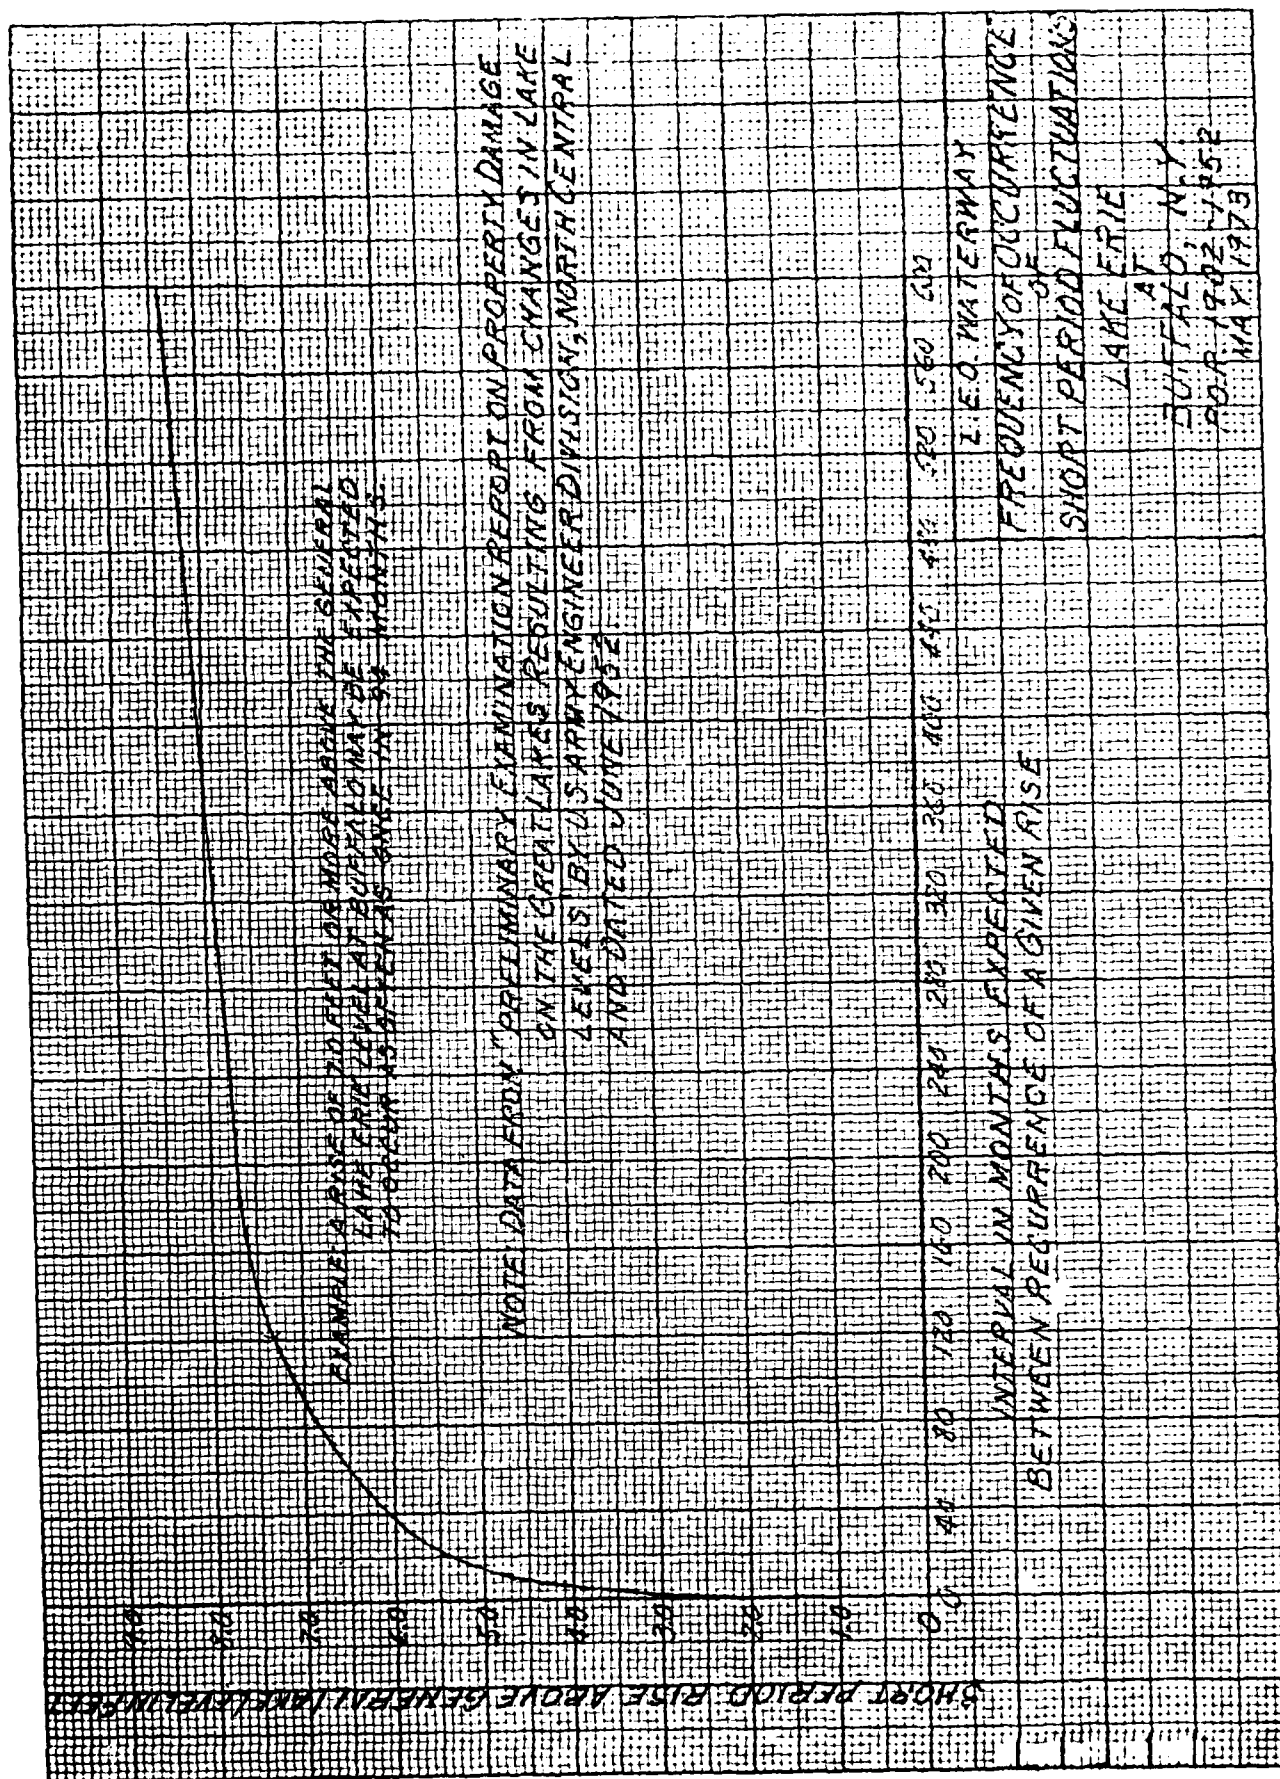 SHORT PERIOD RISE ABOVE GENERAL LAKE LEVEL IN FEET
9.0
8.0
7.0
6.0
5.0
4.0
3.0
2.0
1.0
0
EXAMPLE: A RISE OF 7.0 FEET OR MORE ABOVE THE GENERAL
LAKE ERIE LEVEL AT BUFFALO MAY BE EXPECTED
TO OCCUR AS OFTEN AS ONCE IN 94 MONTHS.
NOTE: DATA FROM "PRELIMINARY EXAMINATION REPORT ON PROPERTY DAMAGE
ON THE GREAT LAKES RESULTING FROM CHANGES IN LAKE
LEVELS" BY U.S. ARMY ENGINEER DIVISION, NORTH CENTRAL
AND DATED JUNE 1952
0 40 80 120 160 200 240 280 320 360 400 440 480 520 560 600
INTERVAL IN MONTHS EXPECTED
BETWEEN RECURRENCE OF A GIVEN RISE
L.E.O. WATERWAY
FREQUENCY OF OCCURRENCE
OF
SHORT PERIOD FLUCTUATIONS
LAKE ERIE
AT
BUFFALO, N.Y.
P.O.R. 1902-1952
MAY 1973